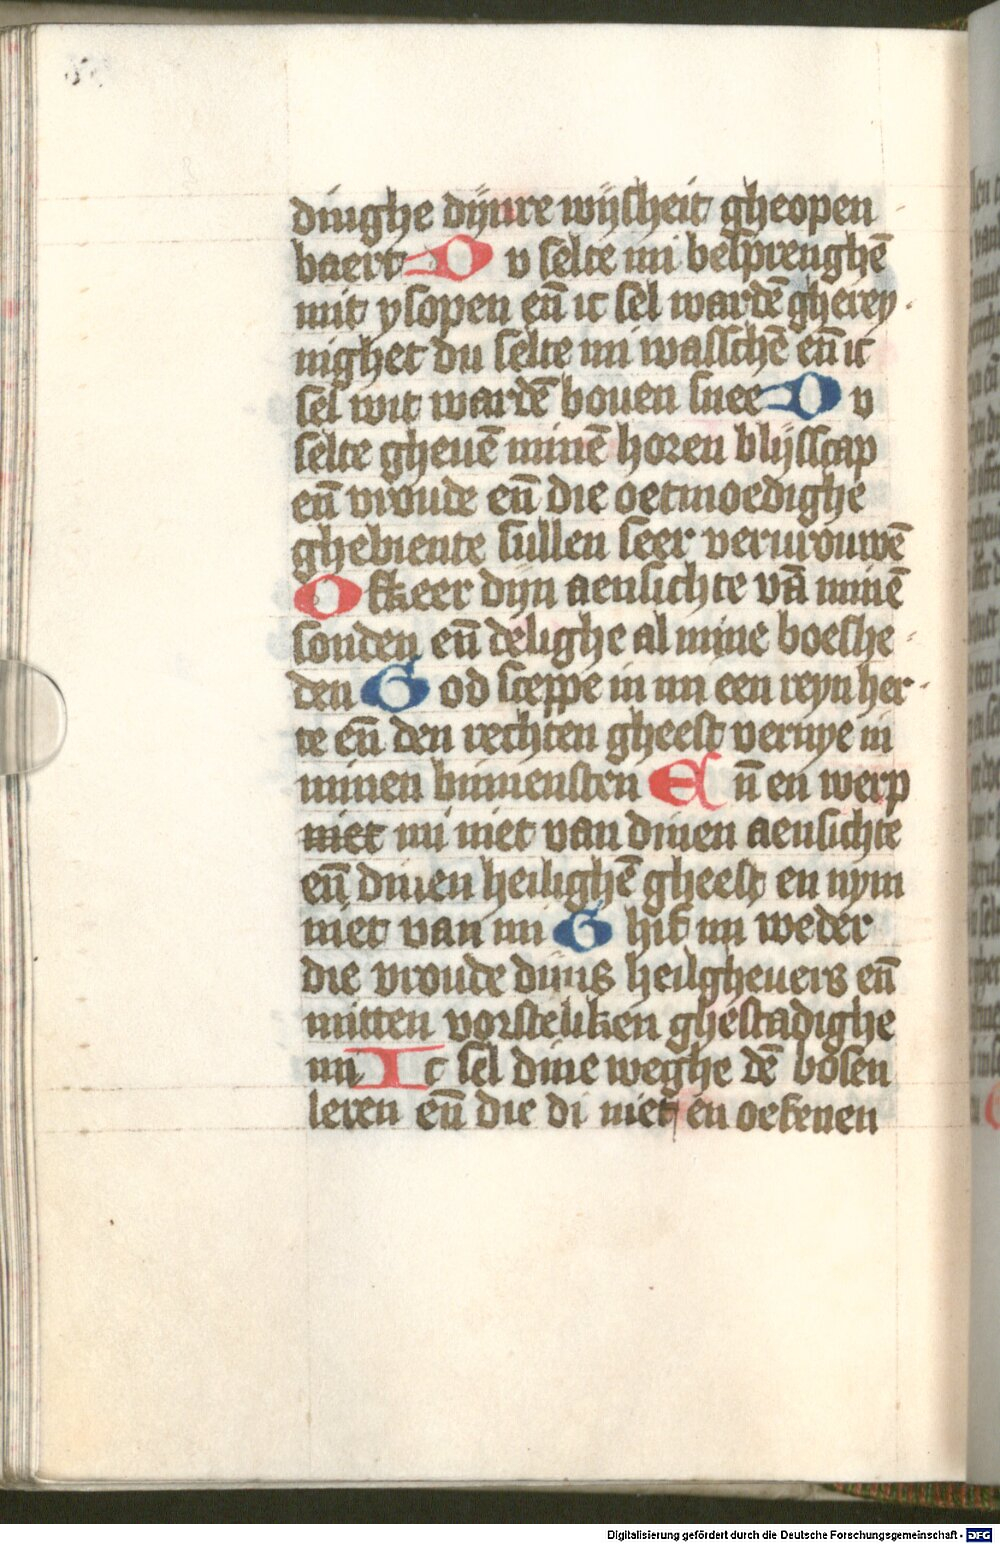 dinghe dijnre wijsheit gheopen
baert Du selte mi besprenghē
mit ysopen eñ ic sel wardē gherey-
nighet du selte mi wasschē eñ ic
sel wit wardē bouen snee Du
selte gheuē minē horen blijsscap
eñ vroude eñ die oetmoedighe
ghebiente sullen seer verurouwē
Ofkeer dijn aensichte vā minē
sonden eñ delighe al mine boeshe-
den God sceppe in mi een reyn her-
te eñ den rechten gheest vernye in
minen binnensten Eñ en werp
niet mi niet van dinen aensichte
eñ dinen heilighē gheest en nym
niet van mi Ghif mi weder
die vroude dijns heilgheuers eñ
mitten vorsteliken ghestadighe
mi Ic sel dine weghe dē bosen
leren eñ die di niet en oefenen
Digitalisierung gefördert durch die Deutsche Forschungsgemeinschaft - DFG